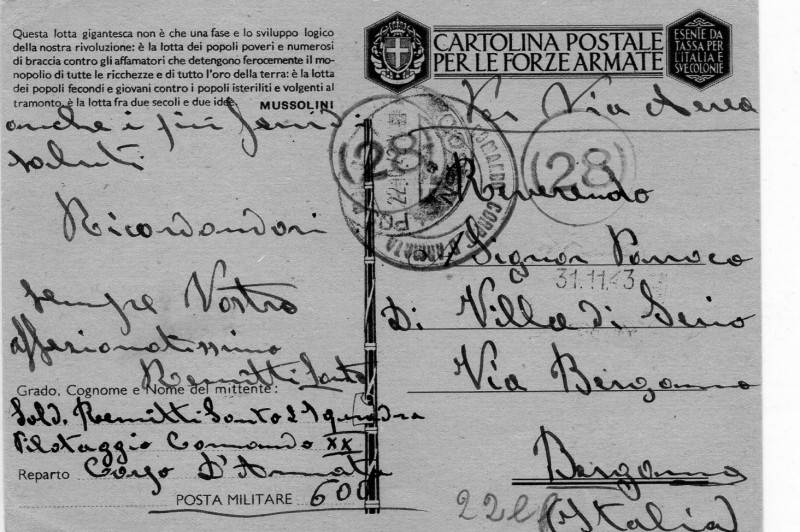 Questa lotta gigantesca non è che una fase e lo sviluppo logico
della nostra rivoluzione: è la lotta dei popoli poveri e numerosi
di braccia contro gli affamatori che detengono ferocemente il mo-
nopolio di tutte le ricchezze e di tutto l'oro della terra: è la lotta
dei popoli fecondi e giovani contro i popoli isteriliti e volgenti al
tramonto, è la lotta fra due secoli e due idee.
MUSSOLINI
anche i più
saluti
Ricordandovi
sempre Vostro
affezionatissimo
Remitti Santo
Grado, Cognome e Nome del mittente:
Sold. Remitti Santo 2ª Squadra
Pilotaggio Comando XX
Reparto Corpo D'Armata
POSTA MILITARE 600
CARTOLINA POSTALE
PER LE FORZE ARMATE
ESENTE DA
TASSA PER
L'ITALIA E
SVE COLONIE
Per Via Aerea
(28)
(28)
Reverendo
Signor Parroco
31.11.43
Di Villa di Serio
Via Bergamo
Bergamo
(Italia)